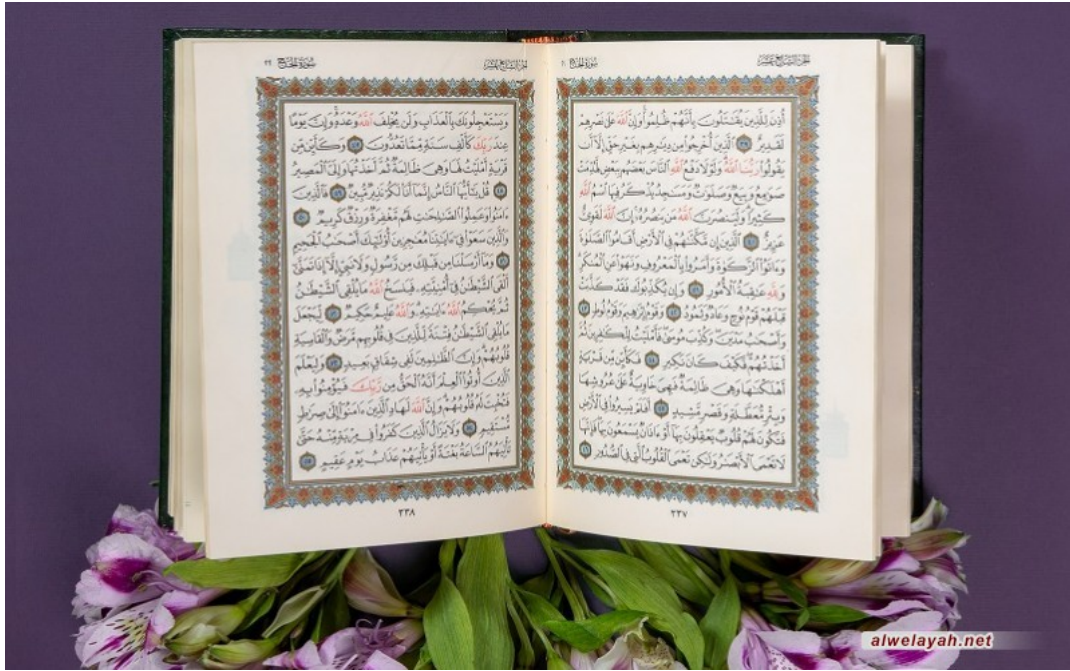 الجزء السابع عشر
سورة الحج
أُذِنَ لِلَّذِينَ يُقَٰتَلُونَ بِأَنَّهُمْ ظُلِمُوا۟ وَإِنَّ ٱللَّهَ عَلَىٰ نَصْرِهِمْ
لَقَدِيرٌ ٣٩ ٱلَّذِينَ أُخْرِجُوا۟ مِن دِيَٰرِهِم بِغَيْرِ حَقٍّ إِلَّآ أَن
يَقُولُوا۟ رَبُّنَا ٱللَّهُ وَلَوْلَا دَفْعُ ٱللَّهِ ٱلنَّاسَ بَعْضَهُم بِبَعْضٍ لَّهُدِّمَتْ
صَوَٰمِعُ وَبِيَعٌ وَصَلَوَٰتٌ وَمَسَٰجِدُ يُذْكَرُ فِيهَا ٱسْمُ ٱللَّهِ
كَثِيرًا وَلَيَنصُرَنَّ ٱللَّهُ مَن يَنصُرُهُۥٓ إِنَّ ٱللَّهَ لَقَوِىٌّ
عَزِيزٌ ٤٠ ٱلَّذِينَ إِن مَّكَّنَّٰهُمْ فِى ٱلْأَرْضِ أَقَامُوا۟ ٱلصَّلَوٰةَ
وَءَاتَوُا۟ ٱلزَّكَوٰةَ وَأَمَرُوا۟ بِٱلْمَعْرُوفِ وَنَهَوْا۟ عَنِ ٱلْمُنكَرِ
وَلِلَّهِ عَٰقِبَةُ ٱلْأُمُورِ ٤١ وَإِن يُكَذِّبُوكَ فَقَدْ كَذَّبَتْ
قَبْلَهُمْ قَوْمُ نُوحٍ وَعَادٌ وَثَمُودُ ٤٢ وَقَوْمُ إِبْرَٰهِيمَ وَقَوْمُ لُوطٍ ٤٣
وَأَصْحَٰبُ مَدْيَنَ وَكُذِّبَ مُوسَىٰ فَأَمْلَيْتُ لِلْكَٰفِرِينَ ثُمَّ
أَخَذْتُهُمْ فَكَيْفَ كَانَ نَكِيرِ ٤٤ فَكَأَيِّن مِّن قَرْيَةٍ
أَهْلَكْنَٰهَا وَهِىَ ظَالِمَةٌ فَهِىَ خَاوِيَةٌ عَلَىٰ عُرُوشِهَا
وَبِئْرٍ مُّعَطَّلَةٍ وَقَصْرٍ مَّشِيدٍ ٤٥ أَفَلَمْ يَسِيرُوا۟ فِى ٱلْأَرْضِ
فَتَكُونَ لَهُمْ قُلُوبٌ يَعْقِلُونَ بِهَآ أَوْ ءَاذَانٌ يَسْمَعُونَ بِهَا فَإِنَّهَا
لَا تَعْمَى ٱلْأَبْصَٰرُ وَلَٰكِن تَعْمَى ٱلْقُلُوبُ ٱلَّتِى فِى ٱلصُّدُورِ ٤٦
٣٣٧
الجزء السابع عشر
سورة الحج ٢٢
وَيَسْتَعْجِلُونَكَ بِٱلْعَذَابِ وَلَن يُخْلِفَ ٱللَّهُ وَعْدَهُۥ وَإِنَّ يَوْمًا
عِندَ رَبِّكَ كَأَلْفِ سَنَةٍ مِّمَّا تَعُدُّونَ ٤٧ وَكَأَيِّن مِّن
قَرْيَةٍ أَمْلَيْتُ لَهَا وَهِىَ ظَالِمَةٌ ثُمَّ أَخَذْتُهَا وَإِلَىَّ ٱلْمَصِيرُ
٤٨ قُلْ يَٰٓأَيُّهَا ٱلنَّاسُ إِنَّمَآ أَنَا۠ لَكُمْ نَذِيرٌ مُّبِينٌ ٤٩ فَٱلَّذِينَ
ءَامَنُوا۟ وَعَمِلُوا۟ ٱلصَّٰلِحَٰتِ لَهُم مَّغْفِرَةٌ وَرِزْقٌ كَرِيمٌ ٥٠
وَٱلَّذِينَ سَعَوْا۟ فِىٓ ءَايَٰتِنَا مُعَٰجِزِينَ أُو۟لَٰٓئِكَ أَصْحَٰبُ ٱلْجَحِيمِ
٥١ وَمَآ أَرْسَلْنَا مِن قَبْلِكَ مِن رَّسُولٍ وَلَا نَبِىٍّ إِلَّآ إِذَا تَمَنَّىٰٓ
أَلْقَى ٱلشَّيْطَٰنُ فِىٓ أُمْنِيَّتِهِۦ فَيَنسَخُ ٱللَّهُ مَا يُلْقِى ٱلشَّيْطَٰنُ
ثُمَّ يُحْكِمُ ٱللَّهُ ءَايَٰتِهِۦ وَٱللَّهُ عَلِيمٌ حَكِيمٌ ٥٢ لِّيَجْعَلَ
مَا يُلْقِى ٱلشَّيْطَٰنُ فِتْنَةً لِّلَّذِينَ فِى قُلُوبِهِم مَّرَضٌ وَٱلْقَاسِيَةِ
قُلُوبُهُمْ وَإِنَّ ٱلظَّٰلِمِينَ لَفِى شِقَاقٍۭ بَعِيدٍ ٥٣ وَلِيَعْلَمَ
ٱلَّذِينَ أُوتُوا۟ ٱلْعِلْمَ أَنَّهُ ٱلْحَقُّ مِن رَّبِّكَ فَيُؤْمِنُوا۟ بِهِۦ
فَتُخْبِتَ لَهُۥ قُلُوبُهُمْ وَإِنَّ ٱللَّهَ لَهَادِ ٱلَّذِينَ ءَامَنُوٓا۟ إِلَىٰ صِرَٰطٍ
مُّسْتَقِيمٍ ٥٤ وَلَا يَزَالُ ٱلَّذِينَ كَفَرُوا۟ فِى مِرْيَةٍ مِّنْهُ حَتَّىٰ
تَأْتِيَهُمُ ٱلسَّاعَةُ بَغْتَةً أَوْ يَأْتِيَهُمْ عَذَابُ يَوْمٍ عَقِيمٍ ٥٥
٣٣٨
alwelayah.net